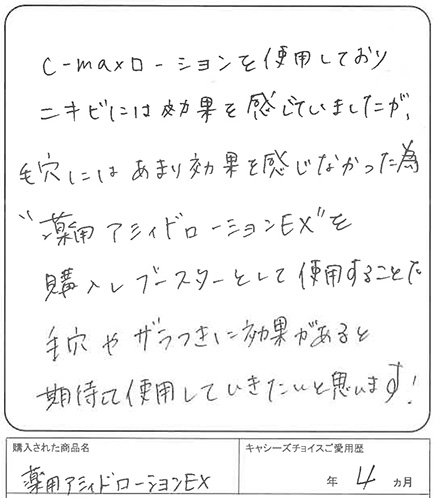 C-maxローションを使用しており
ニキビには効果を感じていましたが、
毛穴にはあまり効果を感じなかった為
"薬用アミノイドローションEX"を
購入しブースターとして使用することで
毛穴やザラつきに効果があると
期待して使用していきたいと思います!
購入された商品名
キャシーズチョイスご愛用歴
薬用アミノイドローションEX
年 4 ヵ月